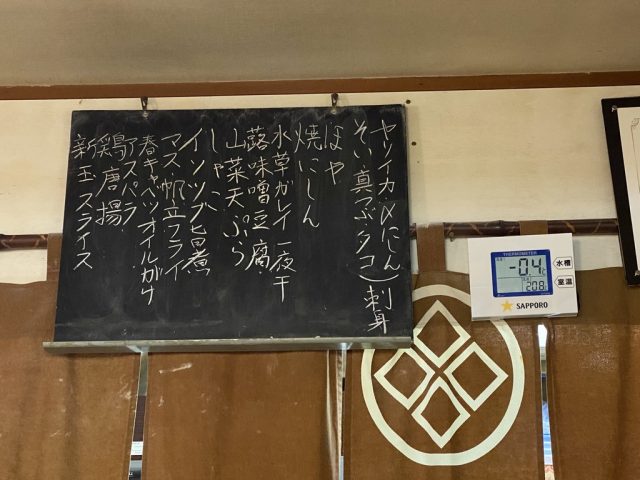 ヤリイカ・〆にしん
そい・真つぶ・タコ 刺身
ほや
焼にしん
水草ガレイ一夜干
蕗味噌豆腐
山菜天ぷら
しゃこ
イソツブ旨煮
マス・帆立フライ
春キャベツオイルがけ
アスパラ
鶏唐揚
新玉スライス
THERMOMETER
-0.4
20.8
水槽
室温
SAPPORO